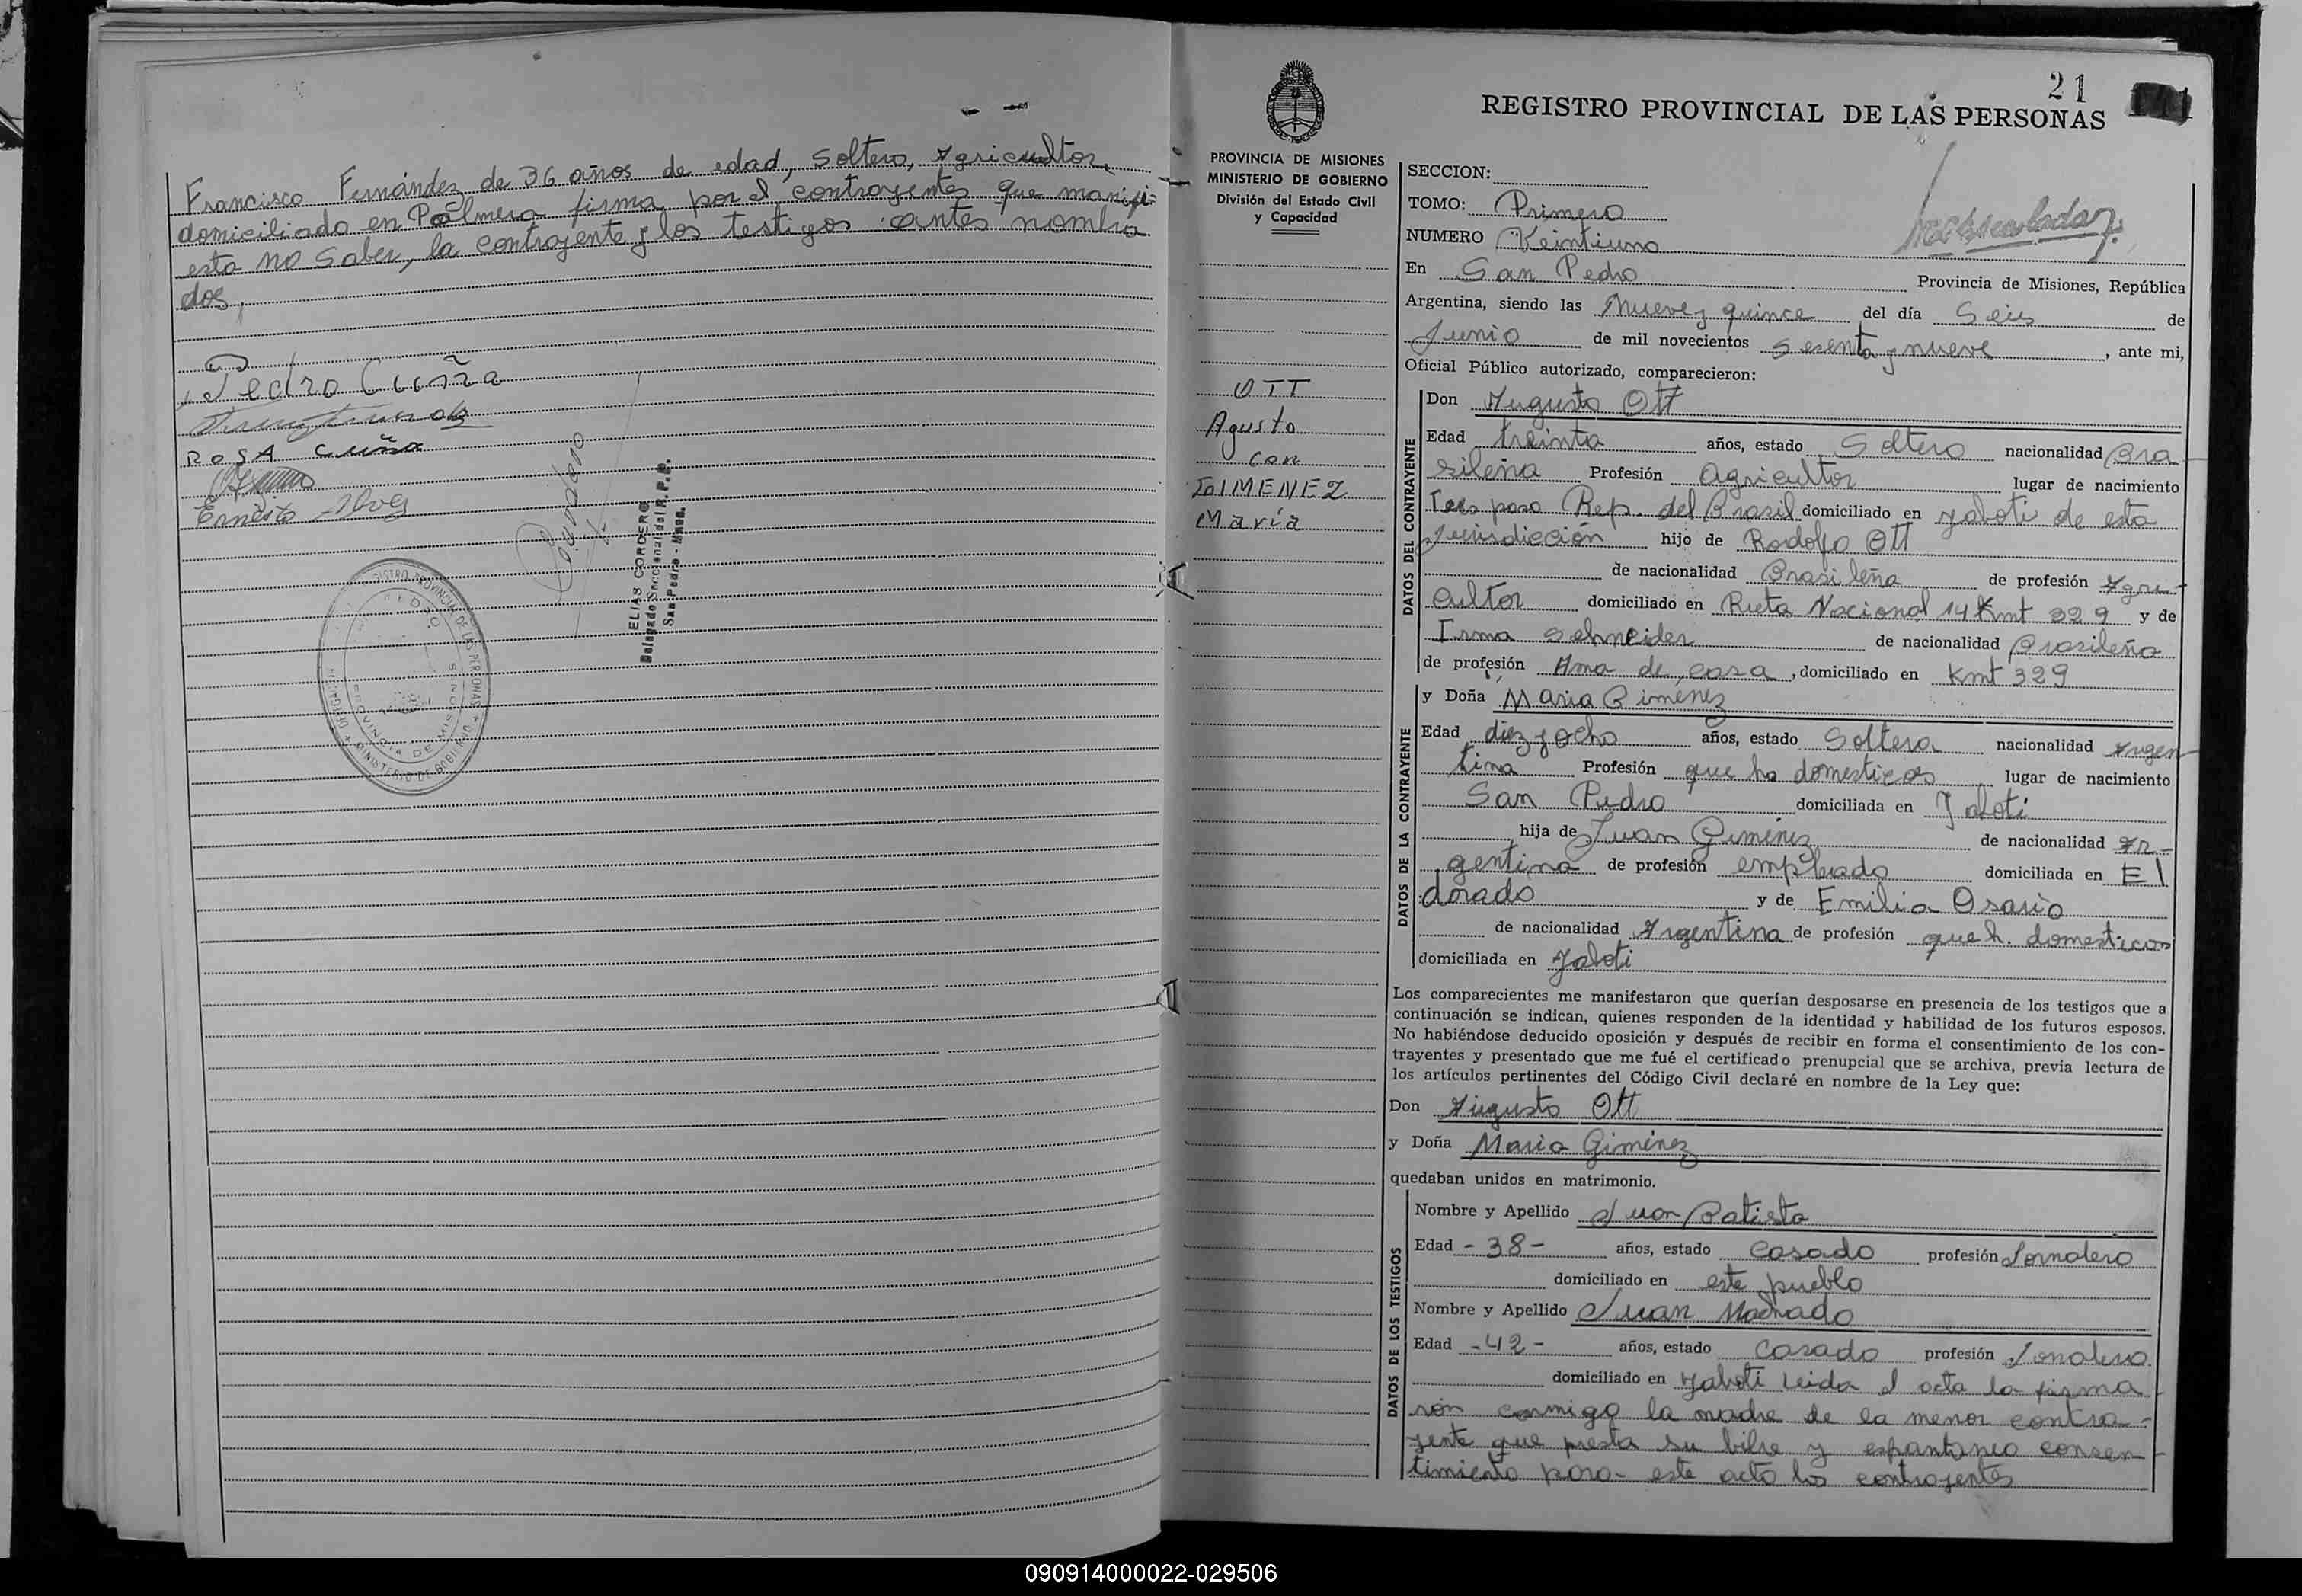 Francisco Fernández de 36 años de edad, Soltero, Agricultor,
domiciliado en Palmera firma por el contrayentes que manifi-
esta no Saber, la contrayente y los testigos antes nombra
dos,
Pedro Cuña
ROSA Cuña
Ernesto Alves
ELIAS CORDERO
Delegado Seccional del R. P. P.
San Pedro - Mnes.
21
REGISTRO PROVINCIAL DE LAS PERSONAS
PROVINCIA DE MISIONES
MINISTERIO DE GOBIERNO
División del Estado Civil
y Capacidad
OTT
Agusto
con
JIMENEZ
María
SECCION:
TOMO: Primero
NUMERO Veintiuno
En San Pedro Provincia de Misiones, República
Argentina, siendo las Nueve y quince del día Seis de
Junio de mil novecientos Sesenta y nueve, ante mi,
Oficial Público autorizado, comparecieron:
DATOS DEL CONTRAYENTE
Don Augusto Ott
Edad treinta años, estado Soltero nacionalidad Bra
sileña Profesión Agricultor lugar de nacimiento
Rep. del Brasil domiciliado en Yaboti de esta
Jurisdicción hijo de Rodolfo Ott
de nacionalidad Brasileña de profesión Agri-
cultor domiciliado en Ruta Nacional 14 Kmt 329 y de
Irma Schneider de nacionalidad Brasileña
de profesión Ama de casa, domiciliado en Kmt 329
DATOS DE LA CONTRAYENTE
y Doña Maria Gimenez
Edad diez y ocho años, estado Soltera nacionalidad Argen
tina Profesión que ha domesticos lugar de nacimiento
San Pedro domiciliada en Yaboti
hija de Juan Giménez de nacionalidad Ar-
gentina de profesión empleado domiciliada en El
dorado y de Emilia Osario
de nacionalidad Argentina de profesión que h. domesticos
domiciliada en Yaboti
Los comparecientes me manifestaron que querían desposarse en presencia de los testigos que a
continuación se indican, quienes responden de la identidad y habilidad de los futuros esposos.
No habiéndose deducido oposición y después de recibir en forma el consentimiento de los con-
trayentes y presentado que me fué el certificado prenupcial que se archiva, previa lectura de
los artículos pertinentes del Código Civil declaré en nombre de la Ley que:
Don Augusto Ott
y Doña Maria Giménez
quedaban unidos en matrimonio.
DATOS DE LOS TESTIGOS
Nombre y Apellido Juan Batista
Edad - 38 - años, estado Casado profesión Jornalero
domiciliado en este pueblo
Nombre y Apellido Juan Machado
Edad - 42 - años, estado Casado profesión Jornalero
domiciliado en Yaboti Leida el acta la firma
rón conmigo la madre de la menor contra-
yente que presta su libre y espontaneo consen-
timiento para este acto los contrayentes
090914000022-029506